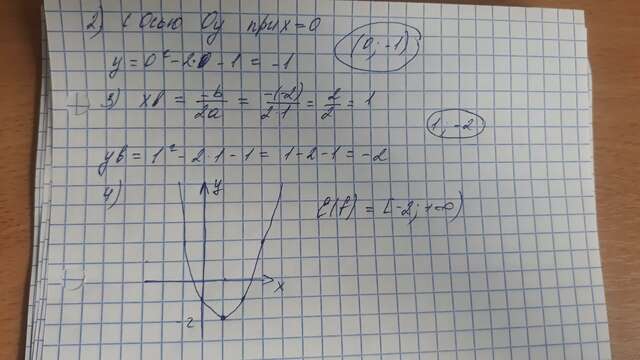 2) С Осью Oy при x=0
(0; -1)
y = 0² - 2·0 - 1 = -1
3) xв = -b/2a = -(-2)/2·1 = 2/2 = 1
1, -2
yв = 1² - 2·1 - 1 = 1-2-1 = -2
4)
y
E(f) = [-2; +∞)
x
-2